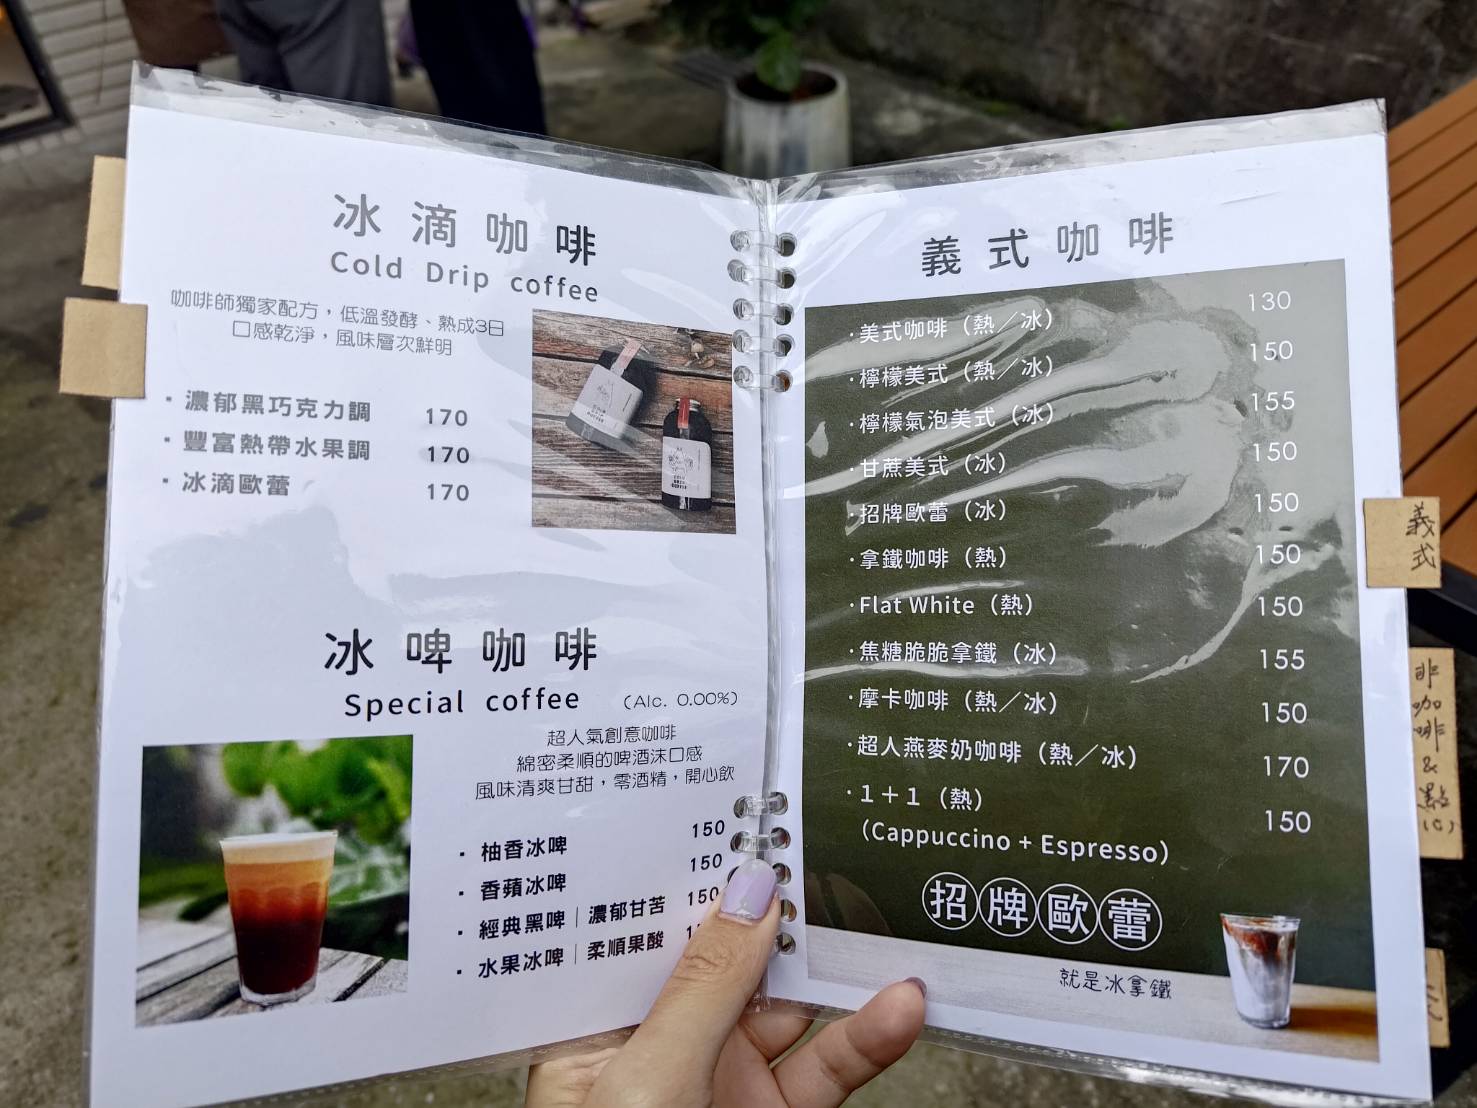 冰滴咖啡
Cold Drip coffee
咖啡師獨家配方，低溫發酵、熟成3日
口感乾淨，風味層次鮮明
· 濃郁黑巧克力調 170
· 豐富熱帶水果調 170
· 冰滴歐蕾 170
冰啤咖啡
Special coffee (Alc. 0.00%)
超人氣創意咖啡
綿密柔順的啤酒沫口感
風味清爽甘甜，零酒精，開心飲
· 柚香冰啤 150
· 香蘋冰啤 150
· 經典黑啤｜濃郁甘苦 150
· 水果冰啤｜柔順果酸
義式咖啡
·美式咖啡（熱／冰） 130
·檸檬美式（熱／冰） 150
·檸檬氣泡美式（冰） 155
·甘蔗美式（冰） 150
·招牌歐蕾（冰） 150
·拿鐵咖啡（熱） 150
·Flat White（熱） 150
·焦糖脆脆拿鐵（冰） 155
·摩卡咖啡（熱／冰） 150
·超人燕麥奶咖啡（熱／冰） 170
·1＋1（熱） 150
（Cappuccino + Espresso）
招牌歐蕾
就是冰拿鐵
義式
非咖啡&